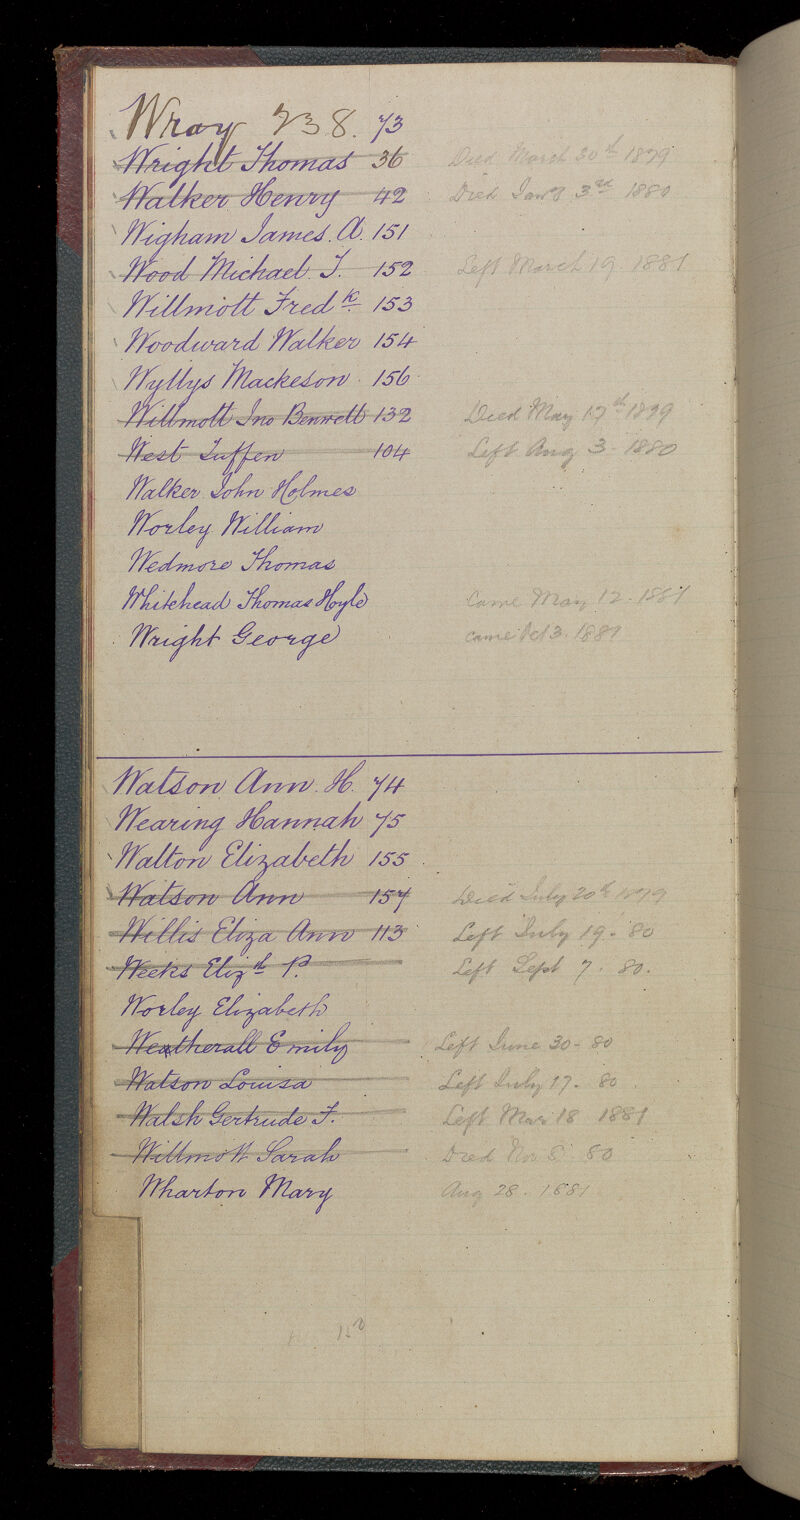 Wray 238. 73
Wright Thomas 36 Died March 30th 1879
Walker Henry 42 Died Jany 3rd 1880
Wigham James. A. 151
Wood Michael. T. 152 Left March 19. 1881
Willmott Fredk. 153
Woodward Walker 154
Wyllys Mackeson 156
Willmott Jno Bennett 132 Died May 17th 1879
West Tuffen 104 Left Aug 3 - 1880
Walker John Holmes
Worley William
Wedmore Thomas
Whitehead Thomas Hoyle Came May 12. 1881
Wright George came Oct 3. 1881
Watson Ann. H. 74
Wearing Hannah 75
Walton Elizabeth 155
Watson Ann 157 Died July 20th 1879
Willis Eliza Ann 113 Left July 19. 80
Weeks Elizth P. Left Sept 7. 80.
Worley Elizabeth
Weatherall Emily Left June 30 - 80
Watson Louisa Left July 17. 80
Walsh Gertrude F. Left Mar 18 1881
Willmott Sarah Died Nov 8 80
Wharton Mary Aug 28. 1881
150